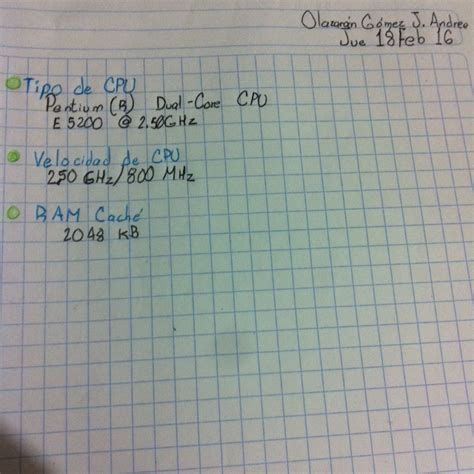 Olazarán Gómez J. Andree
Jue 18 Feb 16
Tipo de CPU
Pentium (R) Dual-Core CPU
E 5200 @ 2.50GHz
Velocidad de CPU
250 GHz/800 MHz
RAM Caché
2048 KB